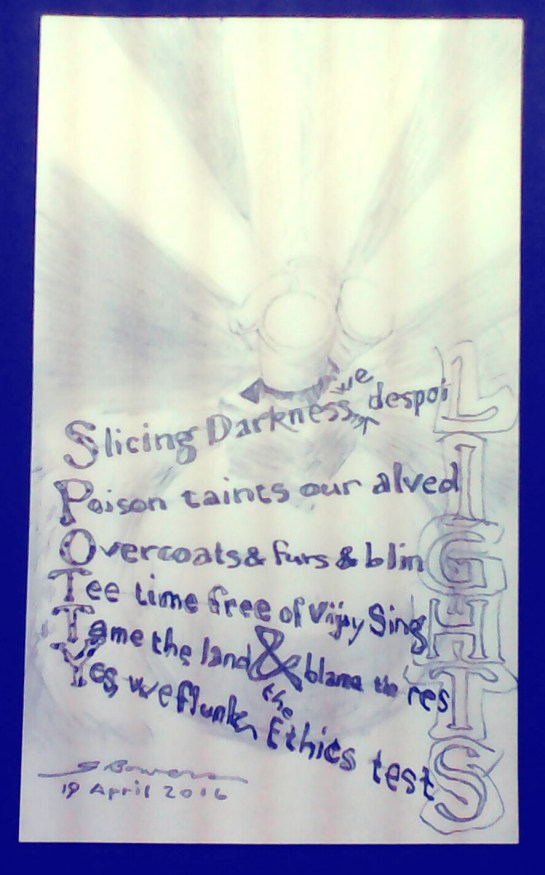 Slicing Darkness, we despoiL
Poison taints our alveolI
Overcoats & furs & blinG
Tee time free of Vijay SingH
Tame the land & blame the resT
Yes we flunk the Ethics testS
19 April 2016